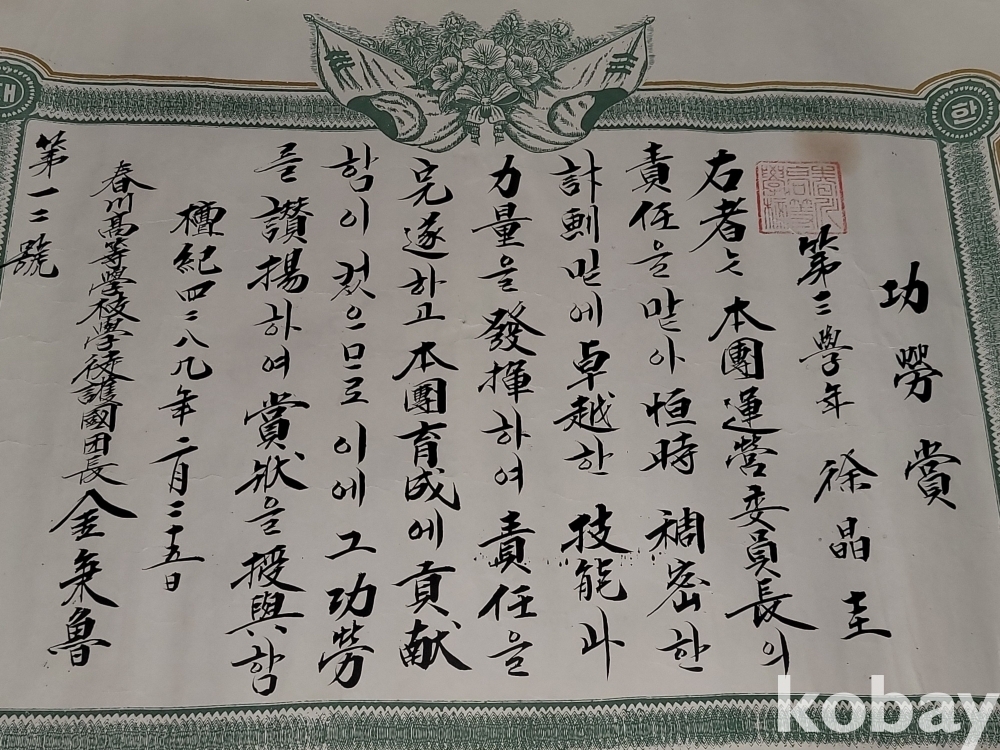 功勞賞
第三學年 徐晶圭
右者는 本團運營委員長의
責任을 맡아 恒時 稠密한
計劃 밑에 卓越한 技能과
力量을 發揮하여 責任을
完遂하고 本團育成에 貢献
함이 컸으므로 이에 그 功勞
를 讃揚하여 賞狀을 授與함
檀紀四二八九年二月二十五日
春川高等學校學徒護國団長 金乘魯
第一二號
kobay